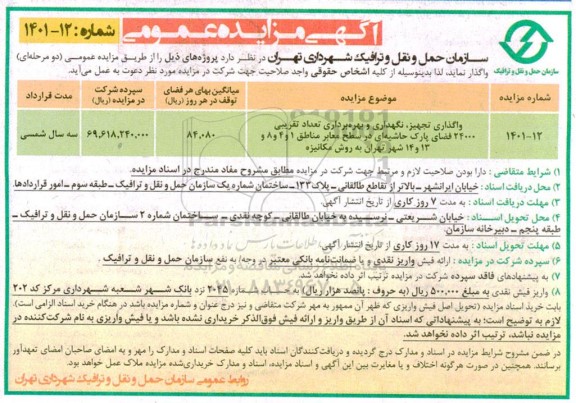 آگهی مزایده عمومی
شماره: ۱۲-۱۴۰۱
سازمان حمل و نقل و ترافیک
سازمان حمل و نقل و ترافیک شهرداری تهران در نظر دارد پروژه‌های ذیل را از طریق مزایده عمومی (دو مرحله‌ای)
واگذار نماید، لذا بدینوسیله از کلیه اشخاص حقوقی واجد صلاحیت جهت شرکت در مزایده مورد نظر دعوت به عمل می‌آید.
شماره مزایده
موضوع مزایده
میانگین بهای هر فضای توقف در هر روز (ریال)
سپرده شرکت در مزایده (ریال)
مدت قرارداد
۱۴۰۱-۱۲
واگذاری تجهیز، نگهداری و بهره‌برداری تعداد تقریبی
۲۴۰۰۰ فضای پارک حاشیه‌ای در سطح معابر مناطق ۱ و ۴ و ۸ و
۱۳ و ۱۴ شهر تهران به روش مکانیزه
۸۴،۰۸۰
۶۹،۶۱۸،۲۴۰،۰۰۰
سه سال شمسی
۱) شرایط متقاضی : دارا بودن صلاحیت لازم و مرتبط جهت شرکت در مزایده مطابق مشروح مفاد مندرج در اسناد مزایده.
۲) محل دریافت اسناد: خیابان ایرانشهر -بالاتر از تقاطع طالقانی- پلاک ۱۲۳- ساختمان شماره یک سازمان حمل و نقل و ترافیک -طبقه سوم -امور قراردادها.
۳) مهلت دریافت اسناد : به مدت ۷ روز کاری از تاریخ انتشار آگهی.
۴) محل تحویل اسناد: خیابان شریعتی - نرسیده به خیابان طالقانی - کوچه نقدی - ساختمان شماره ۲ سازمان حمل و نقل و ترافیک -
طبقه پنجم - دبیرخانه سازمان
۵) مهلت تحویل اسناد : به مدت ۱۷ روز کاری از تاریخ انتشار آگهی.
۶) سپرده شرکت در مزایده : ارائه فیش واریز نقدی و یا ضمانت‌نامه بانکی معتبر در وجه/به نفع سازمان حمل و نقل و ترافیک .
۷) به پیشنهادهای فاقد سپرده شرکت در مزایده ترتیب اثر داده نخواهد شد.
۸) واریز فیش نقدی به مبلغ ۵۰۰،۰۰۰ ریال (به حروف : پانصد هزار ریال) به شماره ۲۰۴۵ نزد بانک شهر شعبه شهرداری مرکز کد ۲۰۲
بابت خرید اسناد مزایده (تحویل اصل فیش واریزی که ظهر آن ممهور به مهر شرکت متقاضی و نیز درج عنوان و شماره مزایده باشد در هنگام خرید اسناد الزامی است).
لازم به توضیح است؛ به پیشنهاداتی که اسناد آن از طریق واریز و ارائه فیش فوق‌الذکر خریداری نشده باشد و یا فیش واریزی به نام شرکت‌کننده در
مزایده نباشد، ترتیب اثر داده نخواهد شد.
در ضمن مشروح شرایط مزایده در اسناد و مدارک درج گردیده و دریافت‌کنندگان اسناد باید کلیه صفحات اسناد و مدارک را مهر و به امضای صاحبان امضای تعهدآور
برسانند. همچنین در صورت هرگونه اختلاف و یا مغایرت بین این آگهی و اسناد مزایده، اسناد و مدارک خریداری‌شده مزایده ملاک عمل خواهد بود.
روابط عمومی سازمان حمل و نقل و ترافیک شهرداری تهران